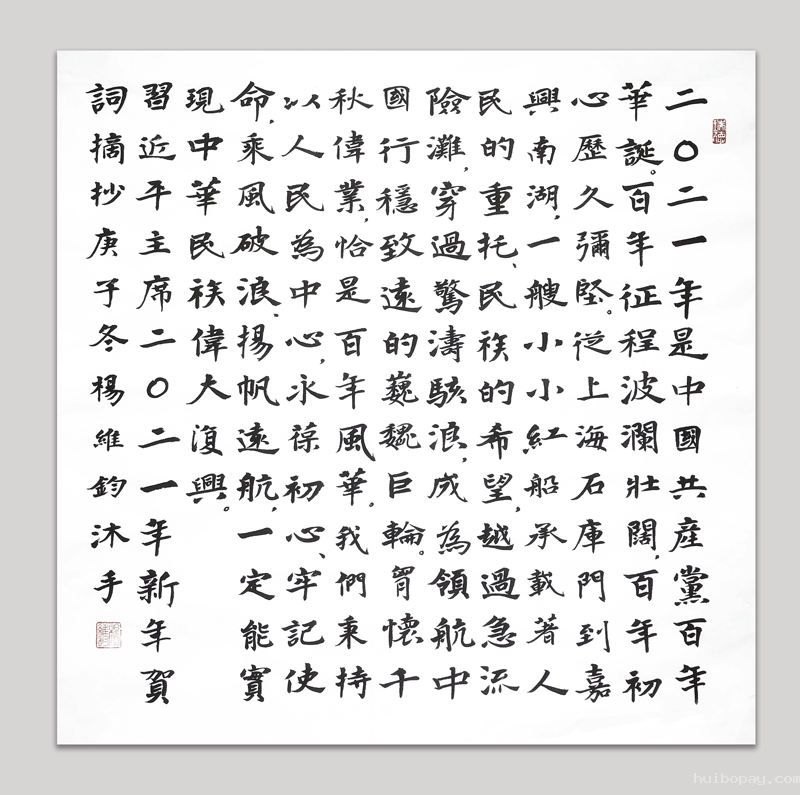 二〇二一年是中國共産黨百年
華誕。百年征程波瀾壯闊,百年初
心歷久彌堅。從上海石庫門到嘉
興南湖,一艘小小紅船承載著人
民的重托、民族的希望,越過急流
險灘,穿過驚濤駭浪,成為領航中
國行穩致遠的巍巍巨輪。胷懷千
秋偉業,恰是百年風華。我們秉持
以人民為中心,永葆初心、牢記使
命,乘風破浪、揚帆遠航,一定能實
現中華民族偉大復興。
習近平主席二〇二一年新年賀
詞摘抄庚子冬楊維鈞沐手
huibopay.com